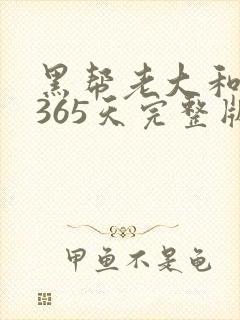 黑帮老大和
365天完整版
甲鱼不是龟